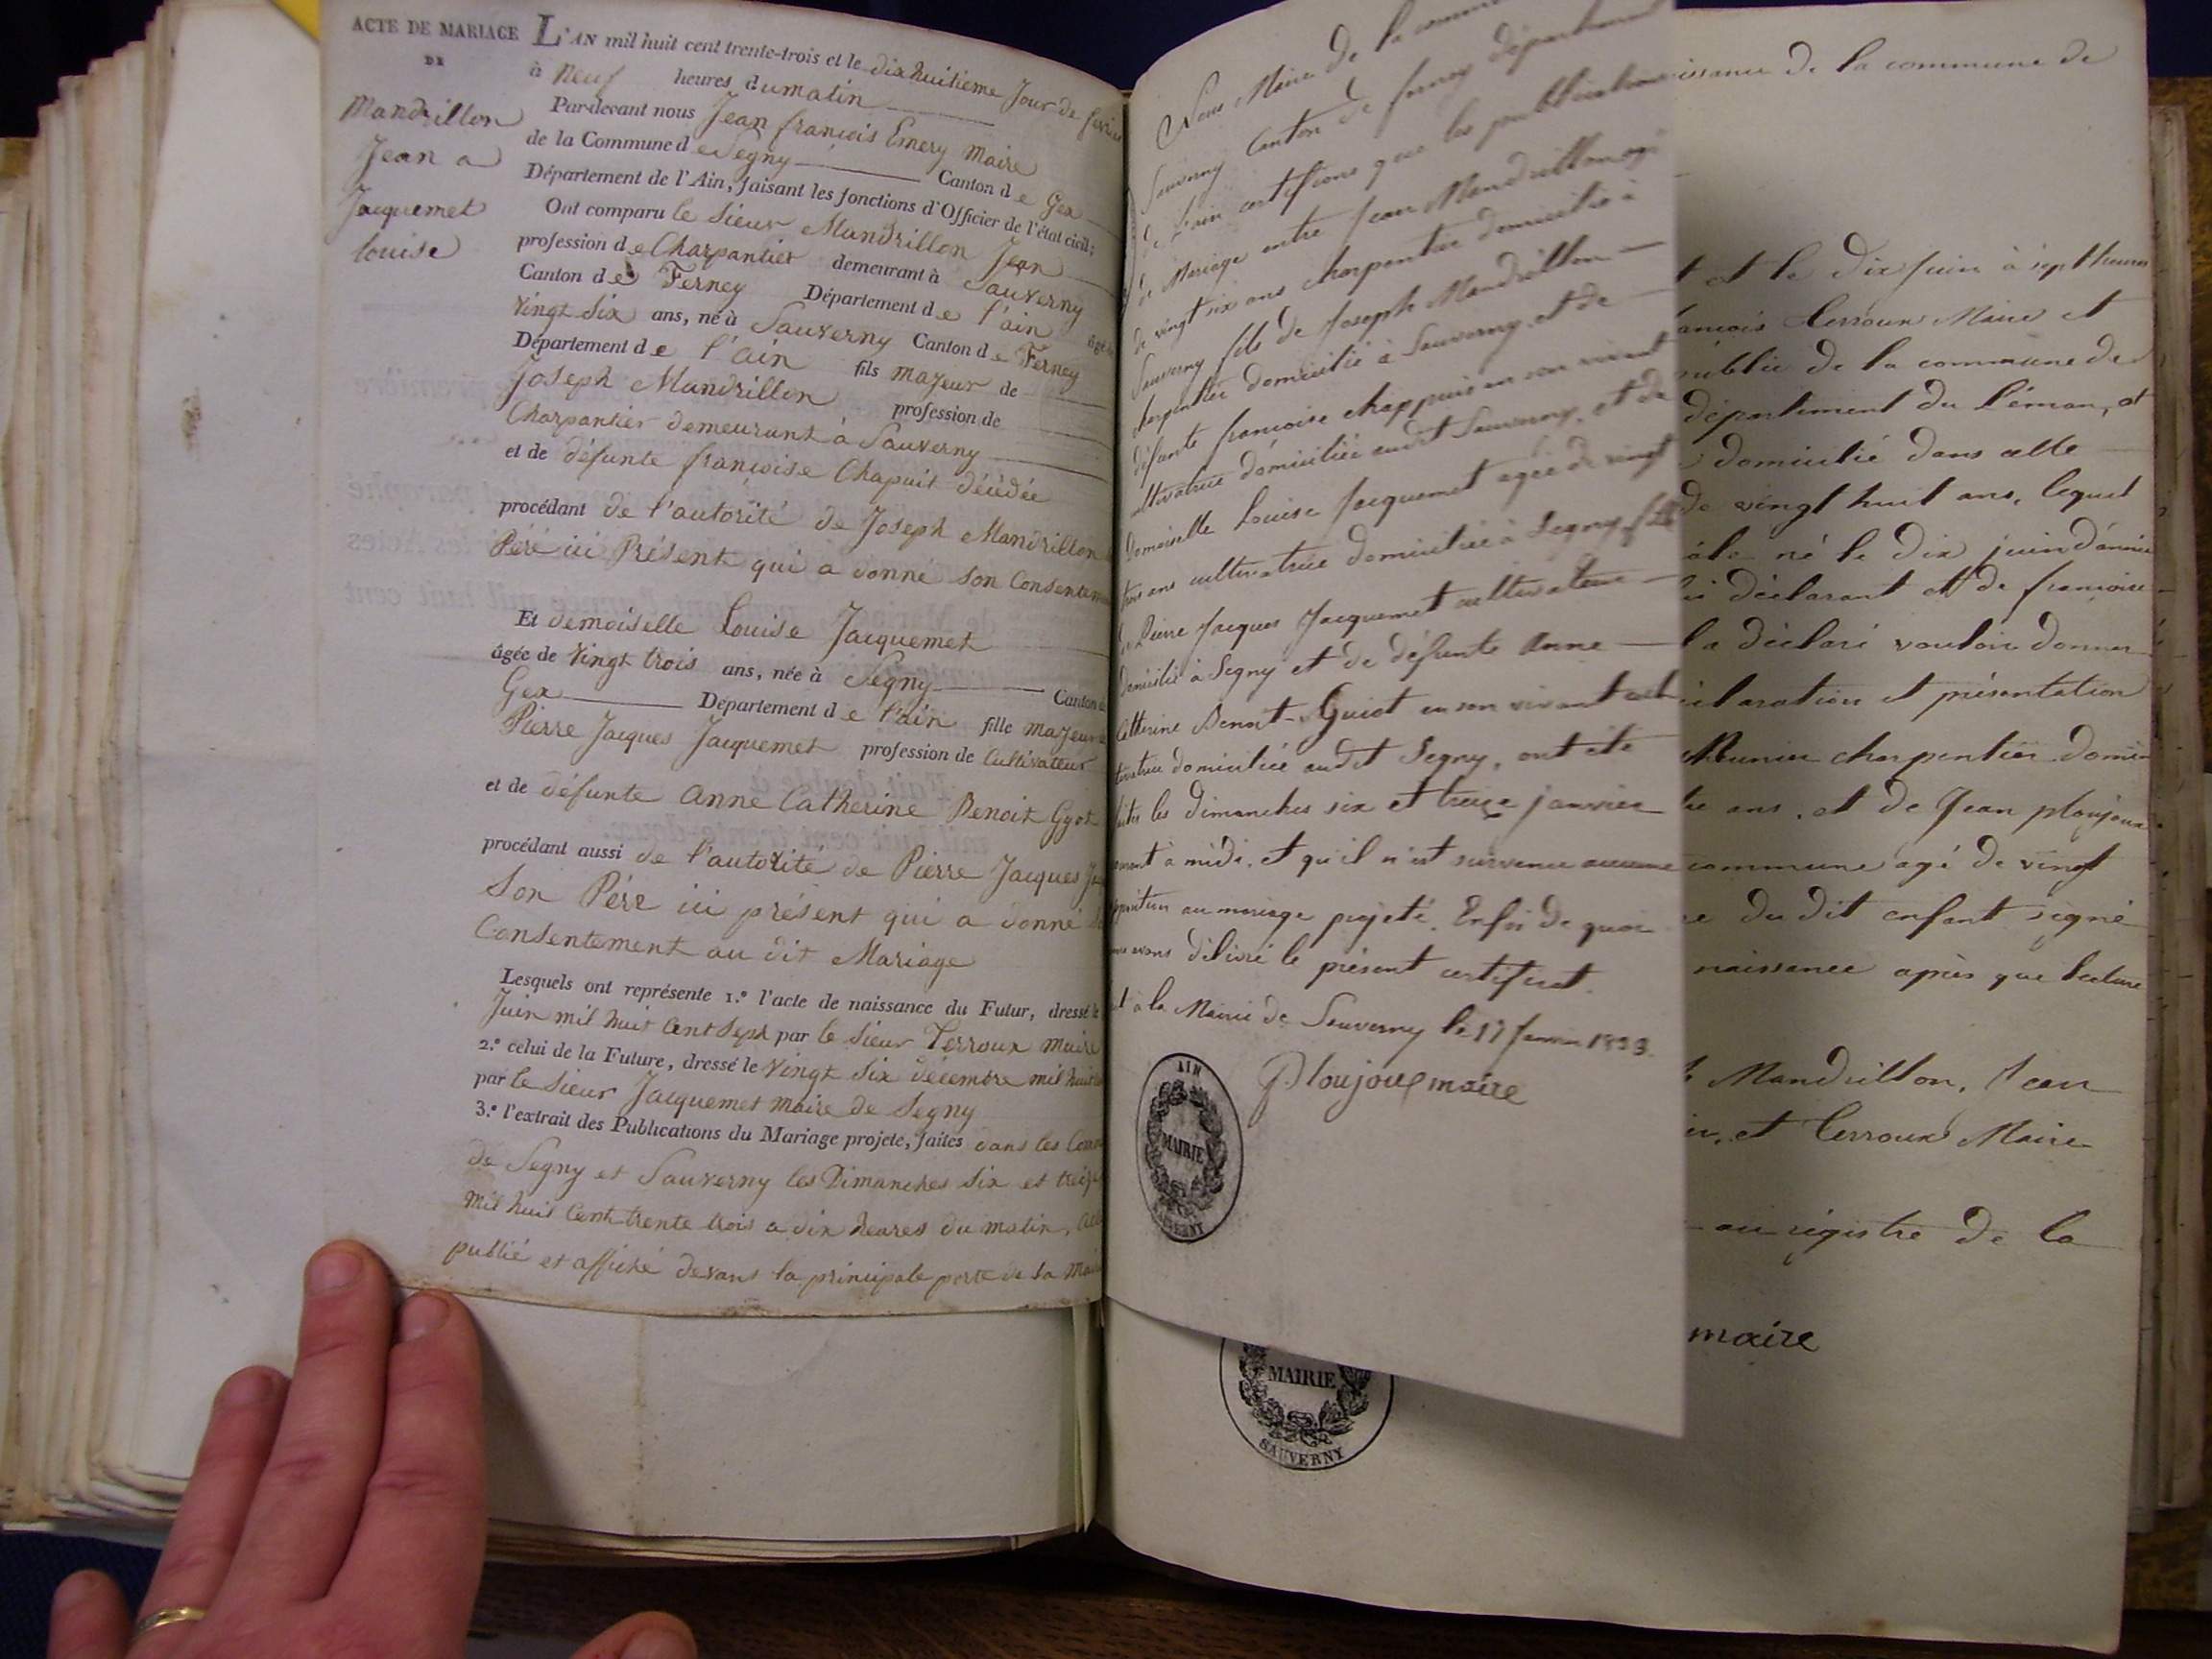 ACTE DE MARIAGE
DE
Mandrillon
Jean a
Jacquemet
louise
L'AN mil huit cent trente-trois et le dix huitieme Jour de fevrier
à Neuf heures du matin
Par-devant nous Jean francois Emery Maire
de la Commune de Segny Canton de Gex
Département de l'Ain, faisant les fonctions d'Officier de l'état civil;
Ont comparu le Sieur Mandrillon Jean
profession de Charpantier demeurant à Sauverny
Canton de Ferney Département de l'ain âgé de
vingt Six ans, né à Sauverny Canton de Ferney
Département de l'ain fils majeur de
Joseph Mandrillon profession de
Charpantier demeurant à Sauverny
et de défunte francoise Chapuit décédée
procédant de l'autorité de Joseph Mandrillon
Pére ici Présent qui a donné son Consentem
Et demoiselle Louise Jacquemet
âgée de Vingt trois ans, née à Segny Canton de
Gex Département de l'ain fille majeur
Pierre Jacques Jacquemet profession de Cultivateur
et de défunte Anne Catherine Benoit Gyot
procédant aussi de l'autorité de Pierre Jacques
Son Pére ici présent qui a donné
Consentement au dit Mariage
Lesquels ont représente 1.º l'acte de naissance du Futur, dressé le
Juin mil huit Cent Sept par le Sieur Terroux maire
2.º celui de la Future, dressé le Vingt Six decembre mil huit
par le Sieur Jacquemet maire de Segny
3.º l'extrait des Publications du Mariage projeté, faites dans les Com
de Segny et Sauverny les Dimanches Six et treize
mil huit Cent trente trois a dix heures du matin,
publié et affiché devant la principale porte de la Mai
Nous Maire de la commune
Sauverny Canton de ferney département
de l'ain certifions que les publications
de Mariage entre Jean Mandrillon agé
de vingt six ans charpentier domicilié à
Sauverny fils de Joseph Mandrillon
charpentier domicilié à Sauverny et de
défunte francoise chappuis en son vivant
cultivatrice domiciliée audit Sauverny, et de
Demoiselle Louise Jacquemet agée de vingt
trois ans cultivatrice domiciliée à Segny fille
de Pierre Jacques Jacquemet cultivateur
domicilié à Segny et de défunte Anne
Catherine Benoit-Guiot en son vivant cul
tivatrice domiciliée audit Segny, ont été
faites les dimanches six et treize janvier
courant à midi, et qu'il n'est survenu aucune
opposition au mariage projeté. En foi de quoi
nous avons délivré le présent certificat.
à la Mairie de Sauverny le 17 Janvier 1833.
Ploujoux maire
AIN
MAIRIE
SAUVERNY
MAIRIE
SAUVERNY
issance de la commune de
et le dix juin à sept heures
ancois Terroux Maire et
public de la commune de
département du Léman, et
domicilié dans cette
de vingt huit ans, lequel
né le dix juin d'année
déclarant et de francoise
a déclaré vouloir donner
claration et présentation
Meunier charpentier domi
ans, et de Jean ploujoux
commune agé de vingt
du dit enfant signé
naissance après que lecture
Mandrillon, Jean
et Terroux Maire
au régistre de la
maire